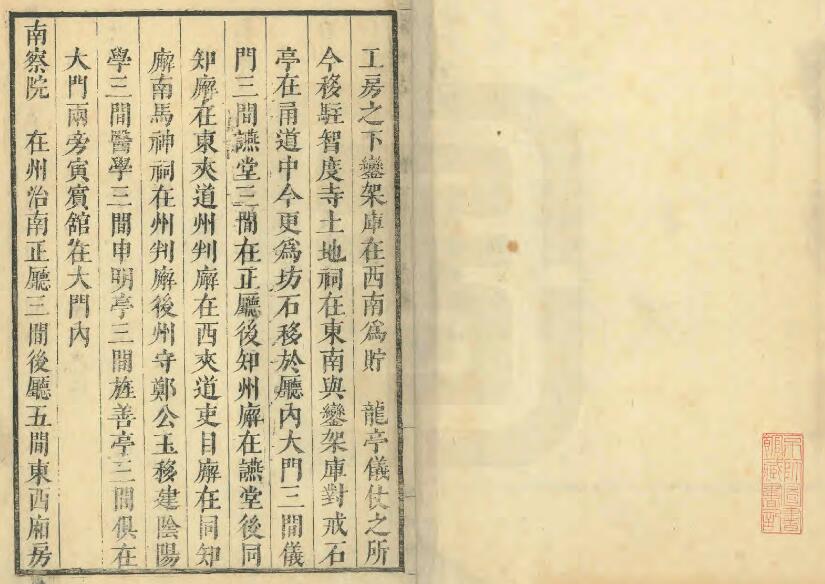 工房之下鑾架庫在西南爲貯　龍亭儀仗之所
今移駐智度寺土地祠在東南與鑾架庫對戒石
亭在甬道中今更爲坊石移於廳内大門三間儀
門三間讌堂三間在正廳後知州廨在讌堂後同
知廨在東夾道州判廨在西夾道吏目廨在同知
廨南馬神祠在州判廨後州守鄭公玉移建陰陽
學三間醫學三間申明亭三間旌善亭三間俱在
大門兩旁寅賓舘在大門内
南察院　在州治南正廳三間後廳五間東西廂房
京師圖書
館藏書記